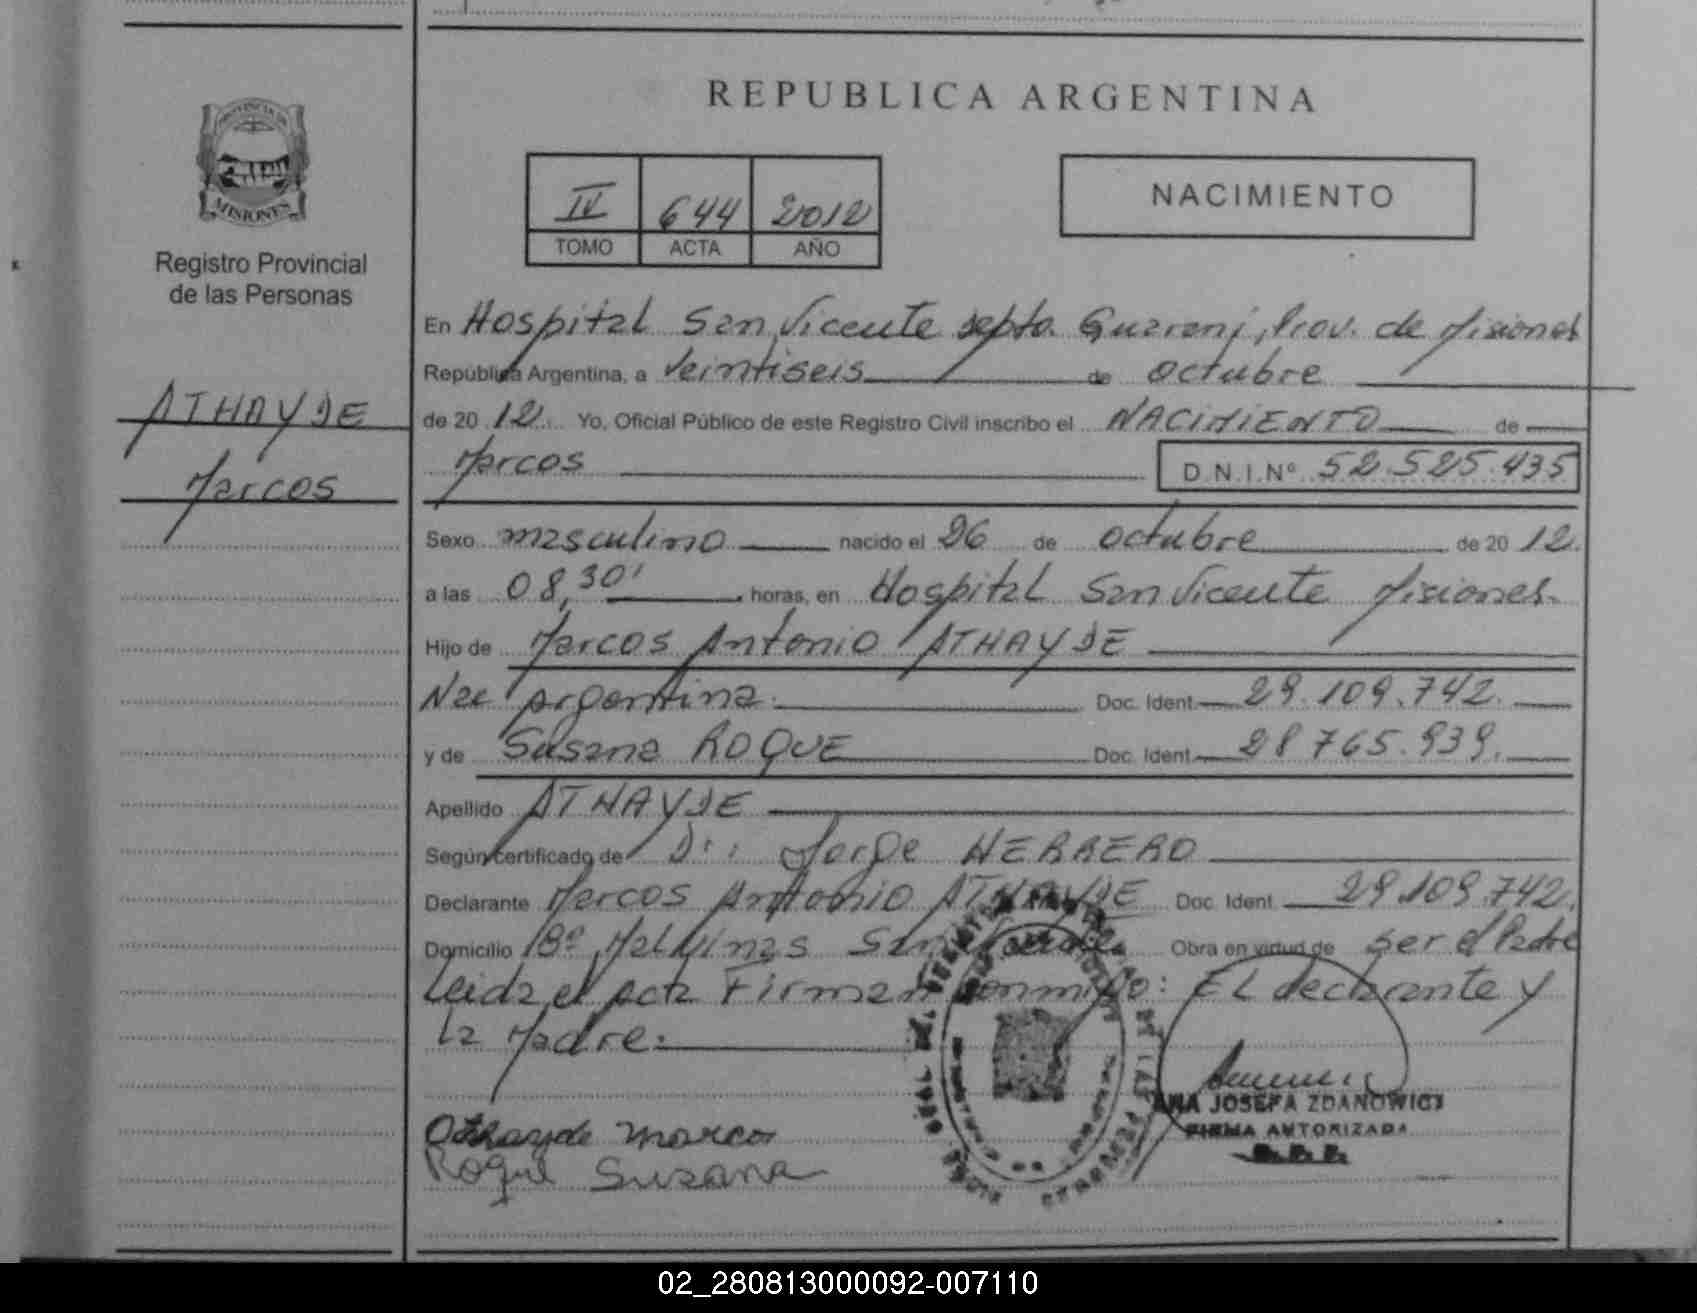 REPUBLICA ARGENTINA
PROVINCIA DE
MISIONES
Registro Provincial
de las Personas
IV 644 2012
TOMO ACTA AÑO
NACIMIENTO
ATHAYDE
Marcos
En Hospital San Vicente depto. Guarani, Prov. de Misiones
República Argentina, a Veintiseis de octubre
de 20 12 Yo, Oficial Público de este Registro Civil inscribo el NACIMIENTO de
Marcos D.N.I.Nº 52.525.435
Sexo masculino nacido el 26 de octubre de 20 12.
a las 08,30' horas, en Hospital San Vicente Misiones.
Hijo de Marcos Antonio ATHAYDE
Nac Argentina. Doc. Ident. 29.109.742.
y de Susana ROQUE Doc. Ident. 28 765.939.
Apellido ATHAYDE
Según certificado de Dr: Jorge HERRERO
Declarante Marcos Antonio ATHAYDE Doc. Ident. 29.109.742.
Domicilio Bº Malvinas San Obra en virtud de ser el Padre
Leida el acta Firman conmigo: EL declarante y
La Madre.
Athayde Marcos
Roque Susana
ANA JOSEFA ZDANOWICZ
FIRMA AUTORIZADA
02_280813000092-007110